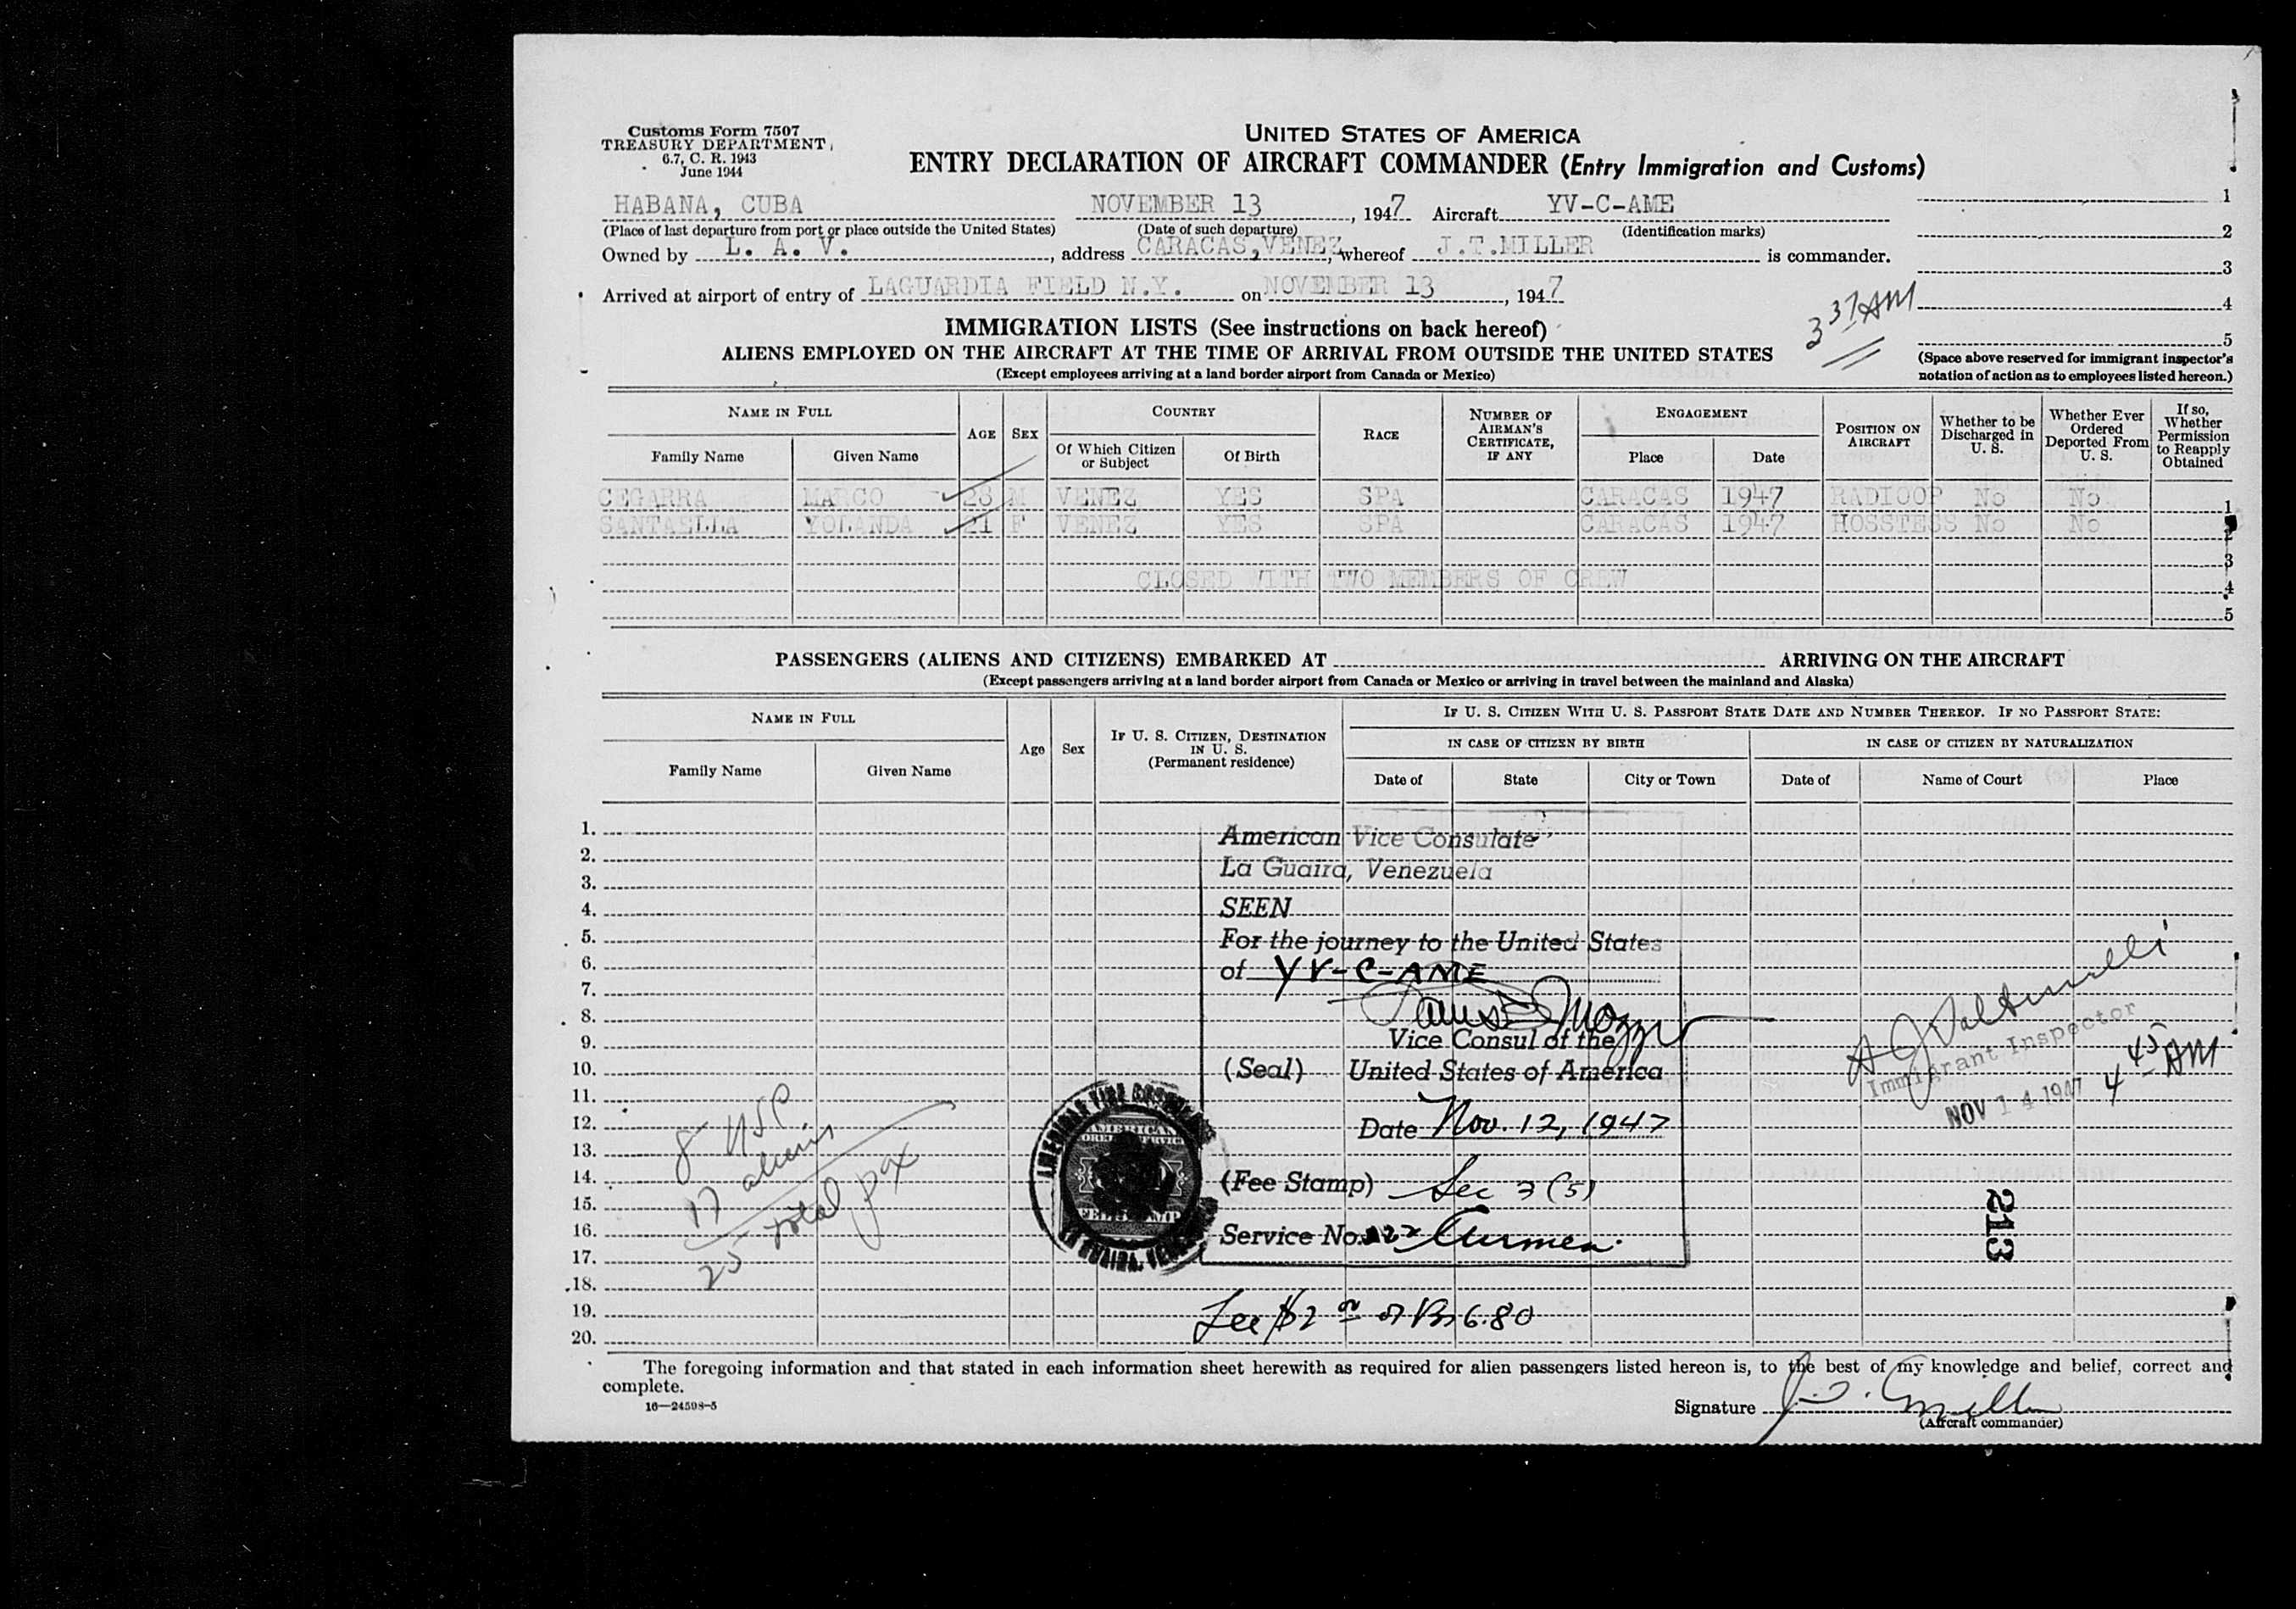 Customs Form 7507
TREASURY DEPARTMENT
6.7, C. R. 1943
June 1944
UNITED STATES OF AMERICA
ENTRY DECLARATION OF AIRCRAFT COMMANDER (Entry Immigration and Customs)
HABANA, CUBA NOVEMBER 13, 1947 Aircraft YV-C-AME
(Place of last departure from port or place outside the United States) (Date of such departure) (Identification marks)
Owned by L. A. V., address CARACAS, VENEZ, whereof J.T.MILLER is commander.
Arrived at airport of entry of LAGUARDIA FIELD N.Y. on NOVEMBER 13, 1947
1
2
3
4
5
3 37 AM
(Space above reserved for immigrant inspector's notation of action as to employees listed hereon.)
IMMIGRATION LISTS (See instructions on back hereof)
ALIENS EMPLOYED ON THE AIRCRAFT AT THE TIME OF ARRIVAL FROM OUTSIDE THE UNITED STATES
(Except employees arriving at a land border airport from Canada or Mexico)
NAME IN FULL AGE SEX COUNTRY RACE NUMBER OF AIRMAN'S CERTIFICATE, IF ANY ENGAGEMENT POSITION ON AIRCRAFT Whether to be Discharged in U. S. Whether Ever Ordered Deported From U. S. If so, Whether Permission to Reapply Obtained
Family Name Given Name Of Which Citizen or Subject Of Birth Place Date
CEGARRA MARCO 23 M VENEZ YES SPA CARACAS 1947 RADIOOP No No 1
SANTAELLA YOLANDA 21 F VENEZ YES SPA CARACAS 1947 HOSSTESS No No 2
3
CLOSED WITH TWO MEMBERS OF CREW
4
5
PASSENGERS (ALIENS AND CITIZENS) EMBARKED AT ARRIVING ON THE AIRCRAFT
(Except passengers arriving at a land border airport from Canada or Mexico or arriving in travel between the mainland and Alaska)
NAME IN FULL Age Sex IF U. S. CITIZEN, DESTINATION IN U. S. (Permanent residence) IF U. S. CITIZEN WITH U. S. PASSPORT STATE DATE AND NUMBER THEREOF. IF NO PASSPORT STATE:
IN CASE OF CITIZEN BY BIRTH IN CASE OF CITIZEN BY NATURALIZATION
Family Name Given Name Date of State City or Town Date of Name of Court Place
1.
2.
3.
4.
5.
6.
7.
8.
9.
10.
11.
12.
13.
14.
15.
16.
17.
18.
19.
20.
American Vice Consulate
La Guaira, Venezuela
SEEN
For the journey to the United States
of YV-C-AME
Vice Consul of the
(Seal) United States of America
Date Nov. 12, 1947
(Fee Stamp) Sec 3 (5)
Service No.
Fee $2 or Bs 6.80
AMERICAN
FEE STAMP
LA GUAIRA,
8 USC
17 aliens
25 total pax
Immigrant Inspector
NOV 14 1947
4 45 AM
213
The foregoing information and that stated in each information sheet herewith as required for alien passengers listed hereon is, to the best of my knowledge and belief, correct and
complete.
16—24598-5
Signature J. T. Miller
(Aircraft commander)